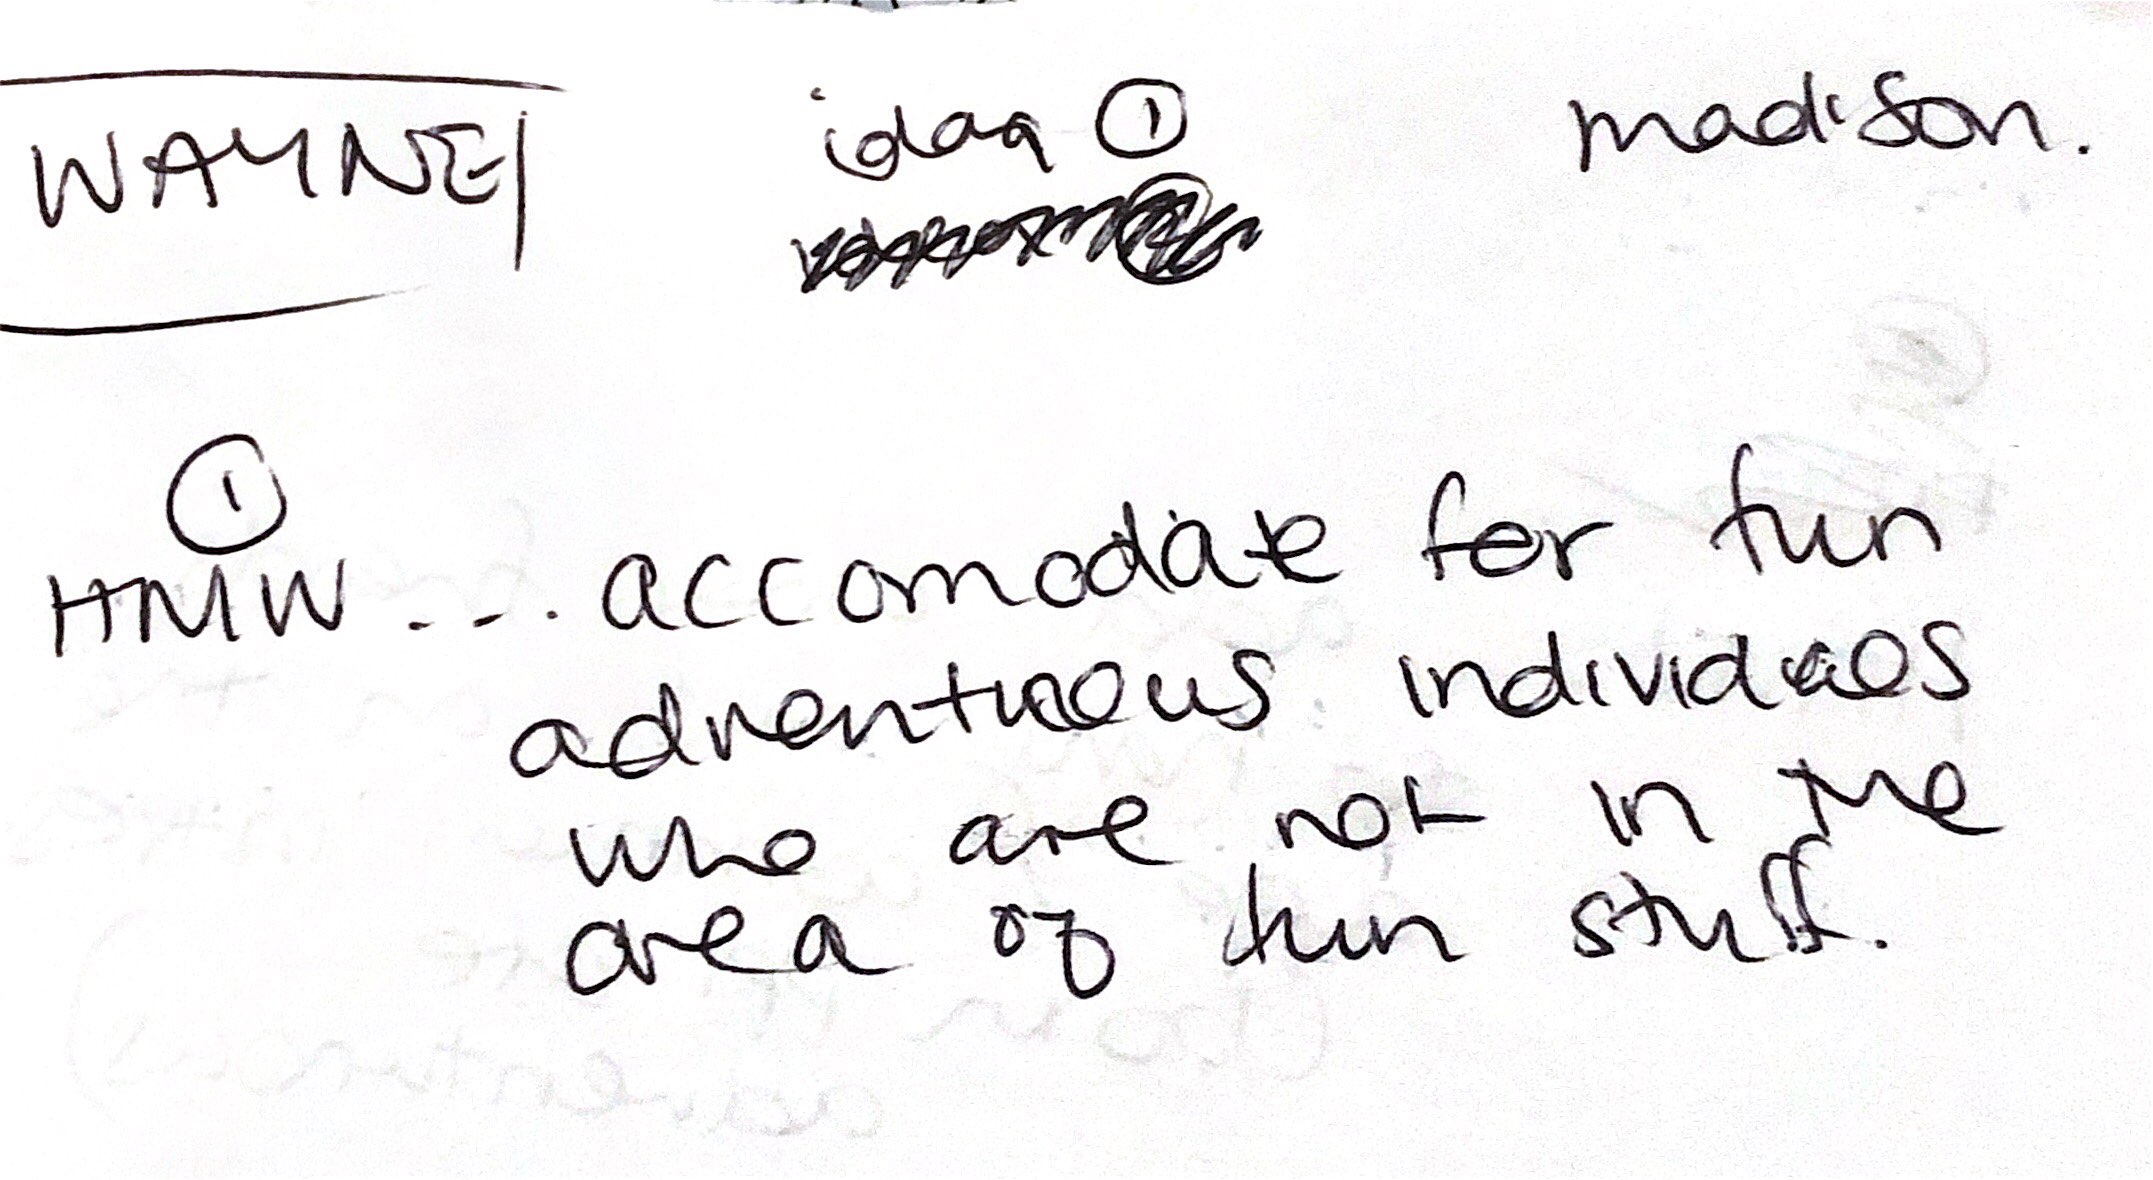 WAYNE idea ① madison.
①
HMW... accomodate for fun
adventureous individuals
who are not in the
area of fun stuff.